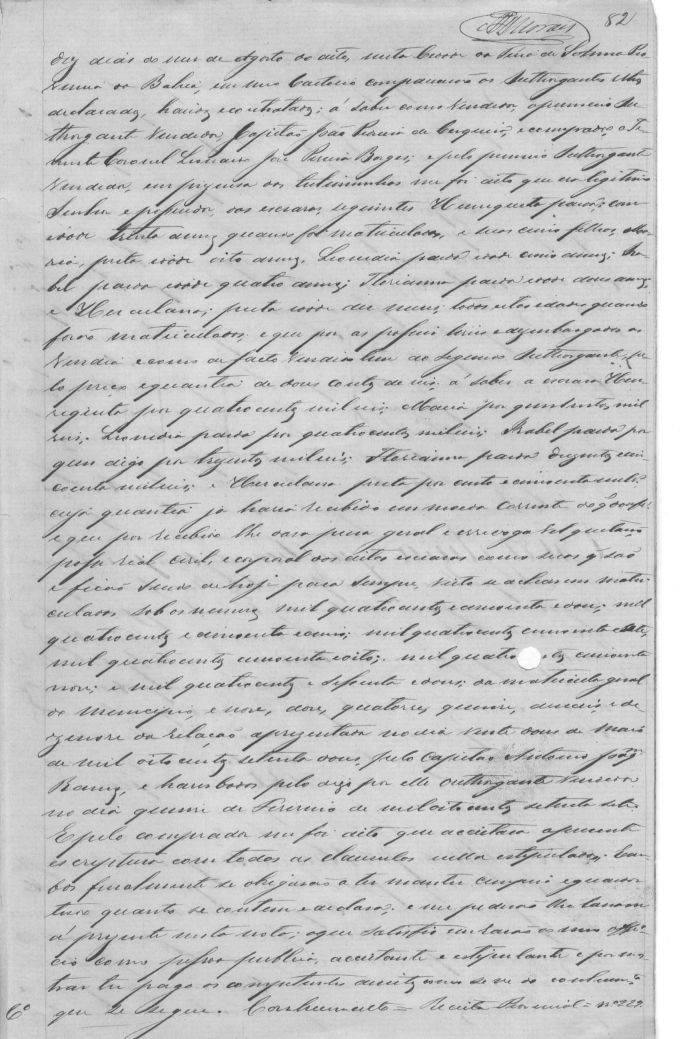 82
dez dias do mes de Agosto do dito, nesta Cidade da Feira de Sant Anna Pro
vincia da Bahia, em meu Cartorio comparecerão os Outhorgantes
declarados, havidos e contratados; á saber como vendedor, o primeiro Ou
thorgante Vendedor, Capitão João Pereira de Cerqueira, e comprador, o Te
nente Coronel Leonardo José Pereira Borges; e pelo primeiro Outhorgante
Vendedor, em presença das testemunhas me foi dito que era legitimo
Senhor e possuidor, dos escravos, seguintes Henriqueta parda, com
idade trinta annos quando foi matriculada, e seus cinco filhos, Ma
ria, preta idade oito annos, Leonidia parda idade cinco annos; Isa
bel parda idade quatro annos; Florianna parda idade dous annos;
e Herculano; preto idade dez mezes; todos estas edades quando
forão matriculados; e que por as possuir livres e desembargados os
vendia e como de facto vendido tem ao segundo Outhorgante, pe
lo preço e quantia de dous contos de reis, á saber a escrava Hen
riqueta por quatro centos mil reis; Maria por quinhentos mil
reis; Leonidia parda por quatrocentos mil reis; Isabel parda por
quin digo por trezentos mil reis; Florianna parda duzentos e cin
coenta mil reis; e Herculano preto por cento e cincoenta mil
cuja quantia já havia recebido em moeda corrente
e que por recebido lhe dava plena geral e irrevogavel quitação
posse real civil, e corporal dos ditos escravos como seus que são
e ficão sendo de hoje para sempre, visto se acharem matri
culados sob os numeros mil quatrocentos e cincoenta e dous; mil
quatrocentos e cincoenta e cinco; mil quatrocentos cincoenta e sete,
mil quatrocentos cincoenta e oito; mil quatrocentos cincoenta
nove; e mil quatrocentos e sessenta e dous; da matricula geral
do municipio, e nove, doze, quatorze, quinze, dezeseis, e de
zenove da relação apresentada no dia vinte dous de Março
de mil oitocentos setenta dous, pelo Capitão Antonio João
e havidos pelo dito por elle Outhorgante Vendedor
no dia quinze de Fevereiro de mil oitocentos setenta sete
E pelo comprador me foi dito que acceitava a presente
escryptura com todas as clausulas nella estipuladas. Eam
bos finalmente se obrigarão a ter manter cumprir e guardar
tudo quanto se contem e declara; e me pedirão lhe lavrasse
á presente nesta nota; o que satisfiz em razão do meu offi
cio como pessoa publica, acceitante e estipulante e por mos
trar ter pago os competentes direitos como se ve do conhecimto
6o que se segue. Conhecimento = Receita Provincial = no 229.